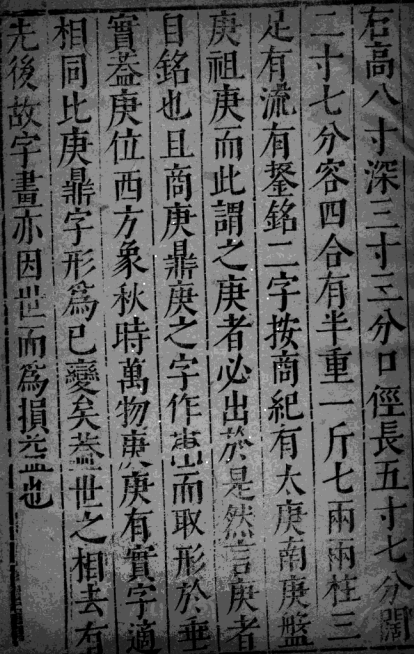 右高八寸深三寸三分口徑長五寸七分闊
二寸七分容四合有半重一斤七兩兩柱三
足有流有鋬銘二字按商紀有大庚南庚盤
庚祖庚而此謂之庚者必出於是然言庚者
目銘也且商庚鼎庚之字作而取形於垂
實蓋庚位西方象秋時萬物庚庚有實字適
相同比庚鼎字形爲已變矣蓋世之相去有
先後故字畫亦因世而爲損益也